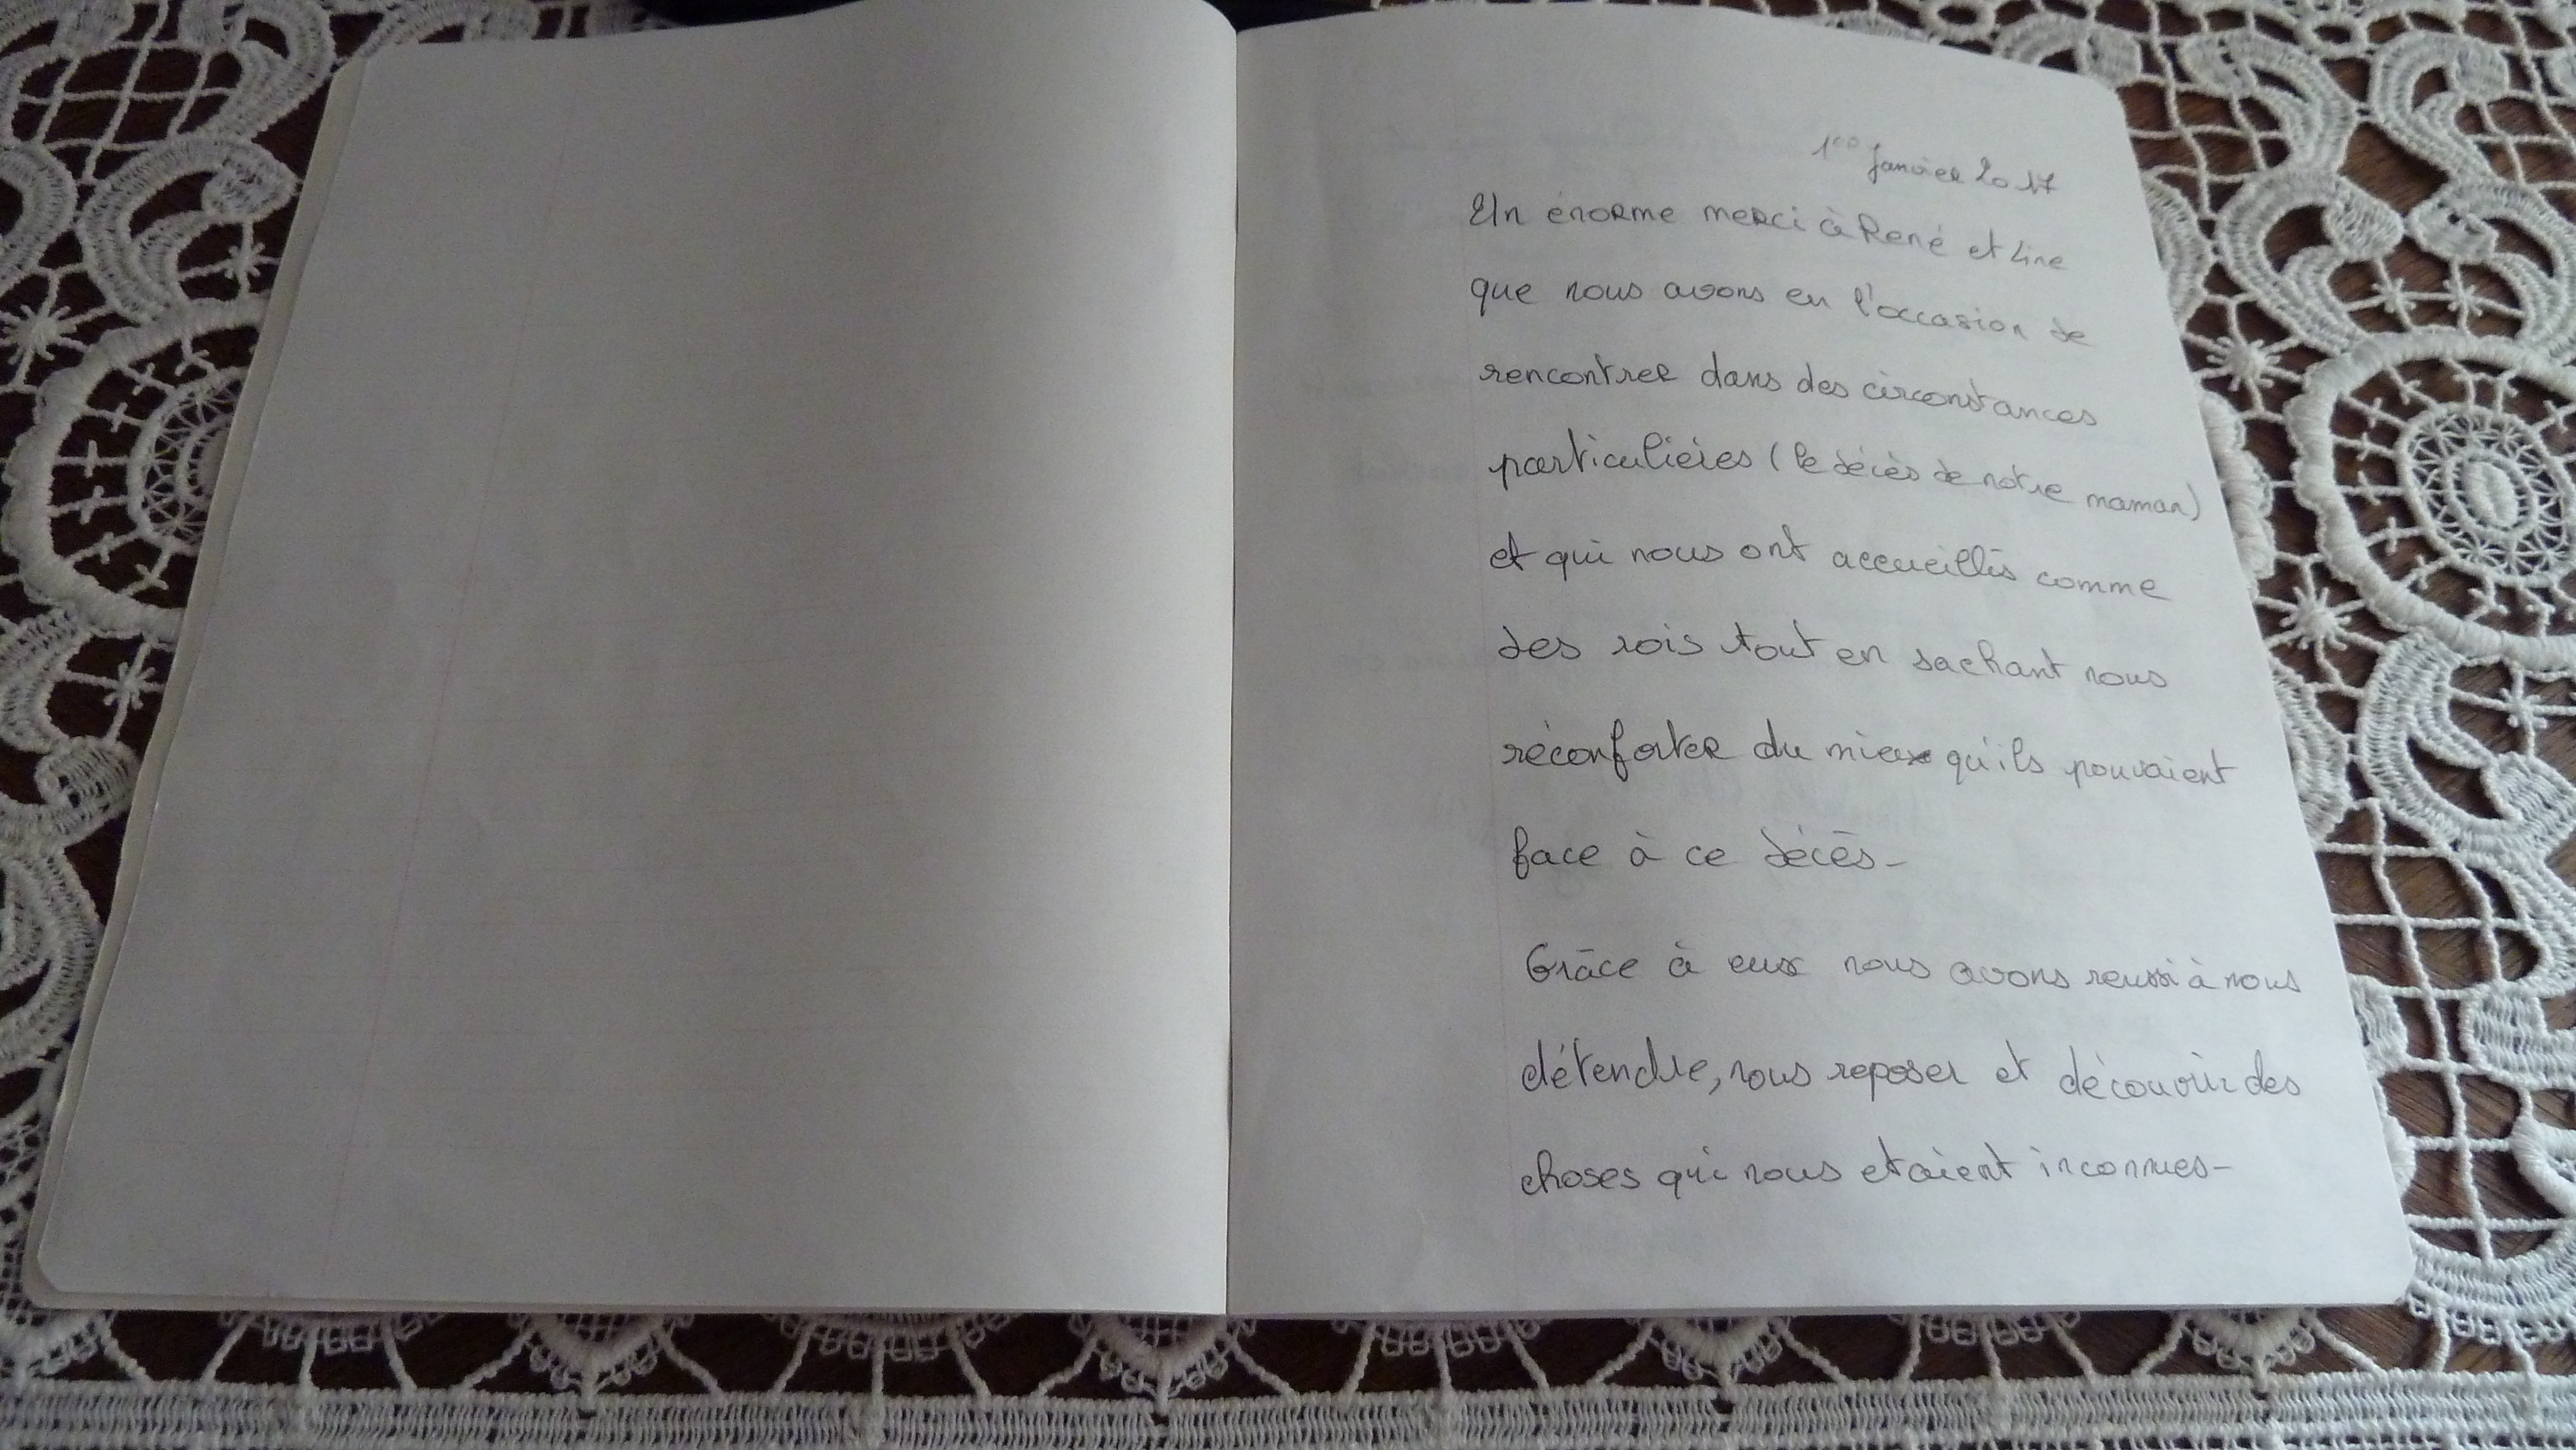 1er Janvier 2017
Un énorme merci à René et Line
que nous avons eu l'occasion de
rencontrer dans des circonstances
particulières (le décès de notre maman)
et qui nous ont accueillis comme
des rois tout en sachant nous
réconforter du mieux qu'ils pouvaient
face à ce décès-
Grâce à eux nous avons reussi à nous
détendre, nous reposer et découvrir des
choses qui nous etaient inconnues-